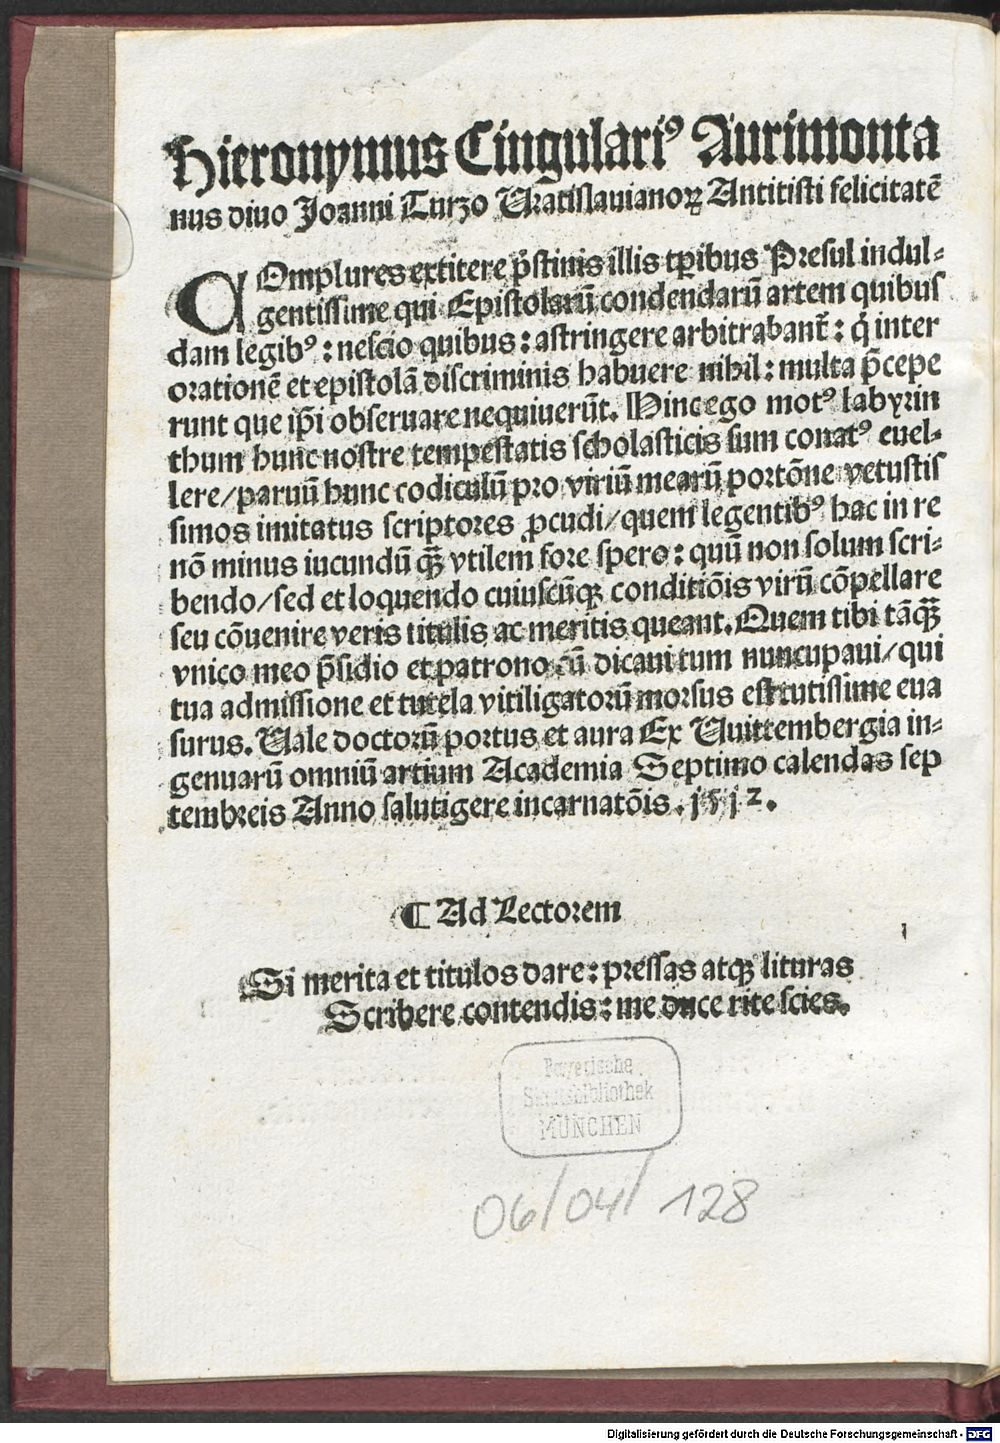 Hieronymus Cingulariꝰ Aurimonta
nus diuo Joanni Turzo Vratislauianoꝝ Antitisti felicitatē
COmplures extitere p̄stinis illis tꝑibus Presul indul-
gentissime qui Epistolarū condendarū artem quibus
dam legibꝰ: nescio quibus: astringere arbitrabant̃: q̇ inter
orationē et epistolā discriminis habuere nihil: multa p̄cepe
runt que ip̄i obseruare nequiuerūt. Hinc ego motꝰ labyrin
thum hunc nostre tempestatis scholasticis sum conatꝰ euel-
lere/paruū hunc codiculū pro viriū mearū portōne vetustis
simos imitatus scriptores ꝓcudi/quem legentibꝰ hac in re
nō minus iucundū qꝫ̄ vtilem fore spero: quū non solum scri-
bendo/sed et loquendo cuiuscūqꝫ conditiōis virū cōpellare
seu cōuenire veris titulis ac meritis queant. Quem tibi tāqꝫ̄
vnico meo p̄sidio et patrono cū dicaui tum nuncupaui/qui
tua admissione et tutela vitiligatorū morsus est tutissime eua
surus. Vale doctorū portus et aura Ex Vuittembergia in-
genuarū omniū artium Academia Septimo calendas sep
tembreis Anno salutigere incarnatōis. 1512.
¶ Ad Lectorem
Si merita et titulos dare: pressas atqꝫ lituras
Scribere contendis: me duce rite scies.
Bayerische
Staatsbibliothek
MÜNCHEN
06/04/128
Digitalisierung gefördert durch die Deutsche Forschungsgemeinschaft - DFG